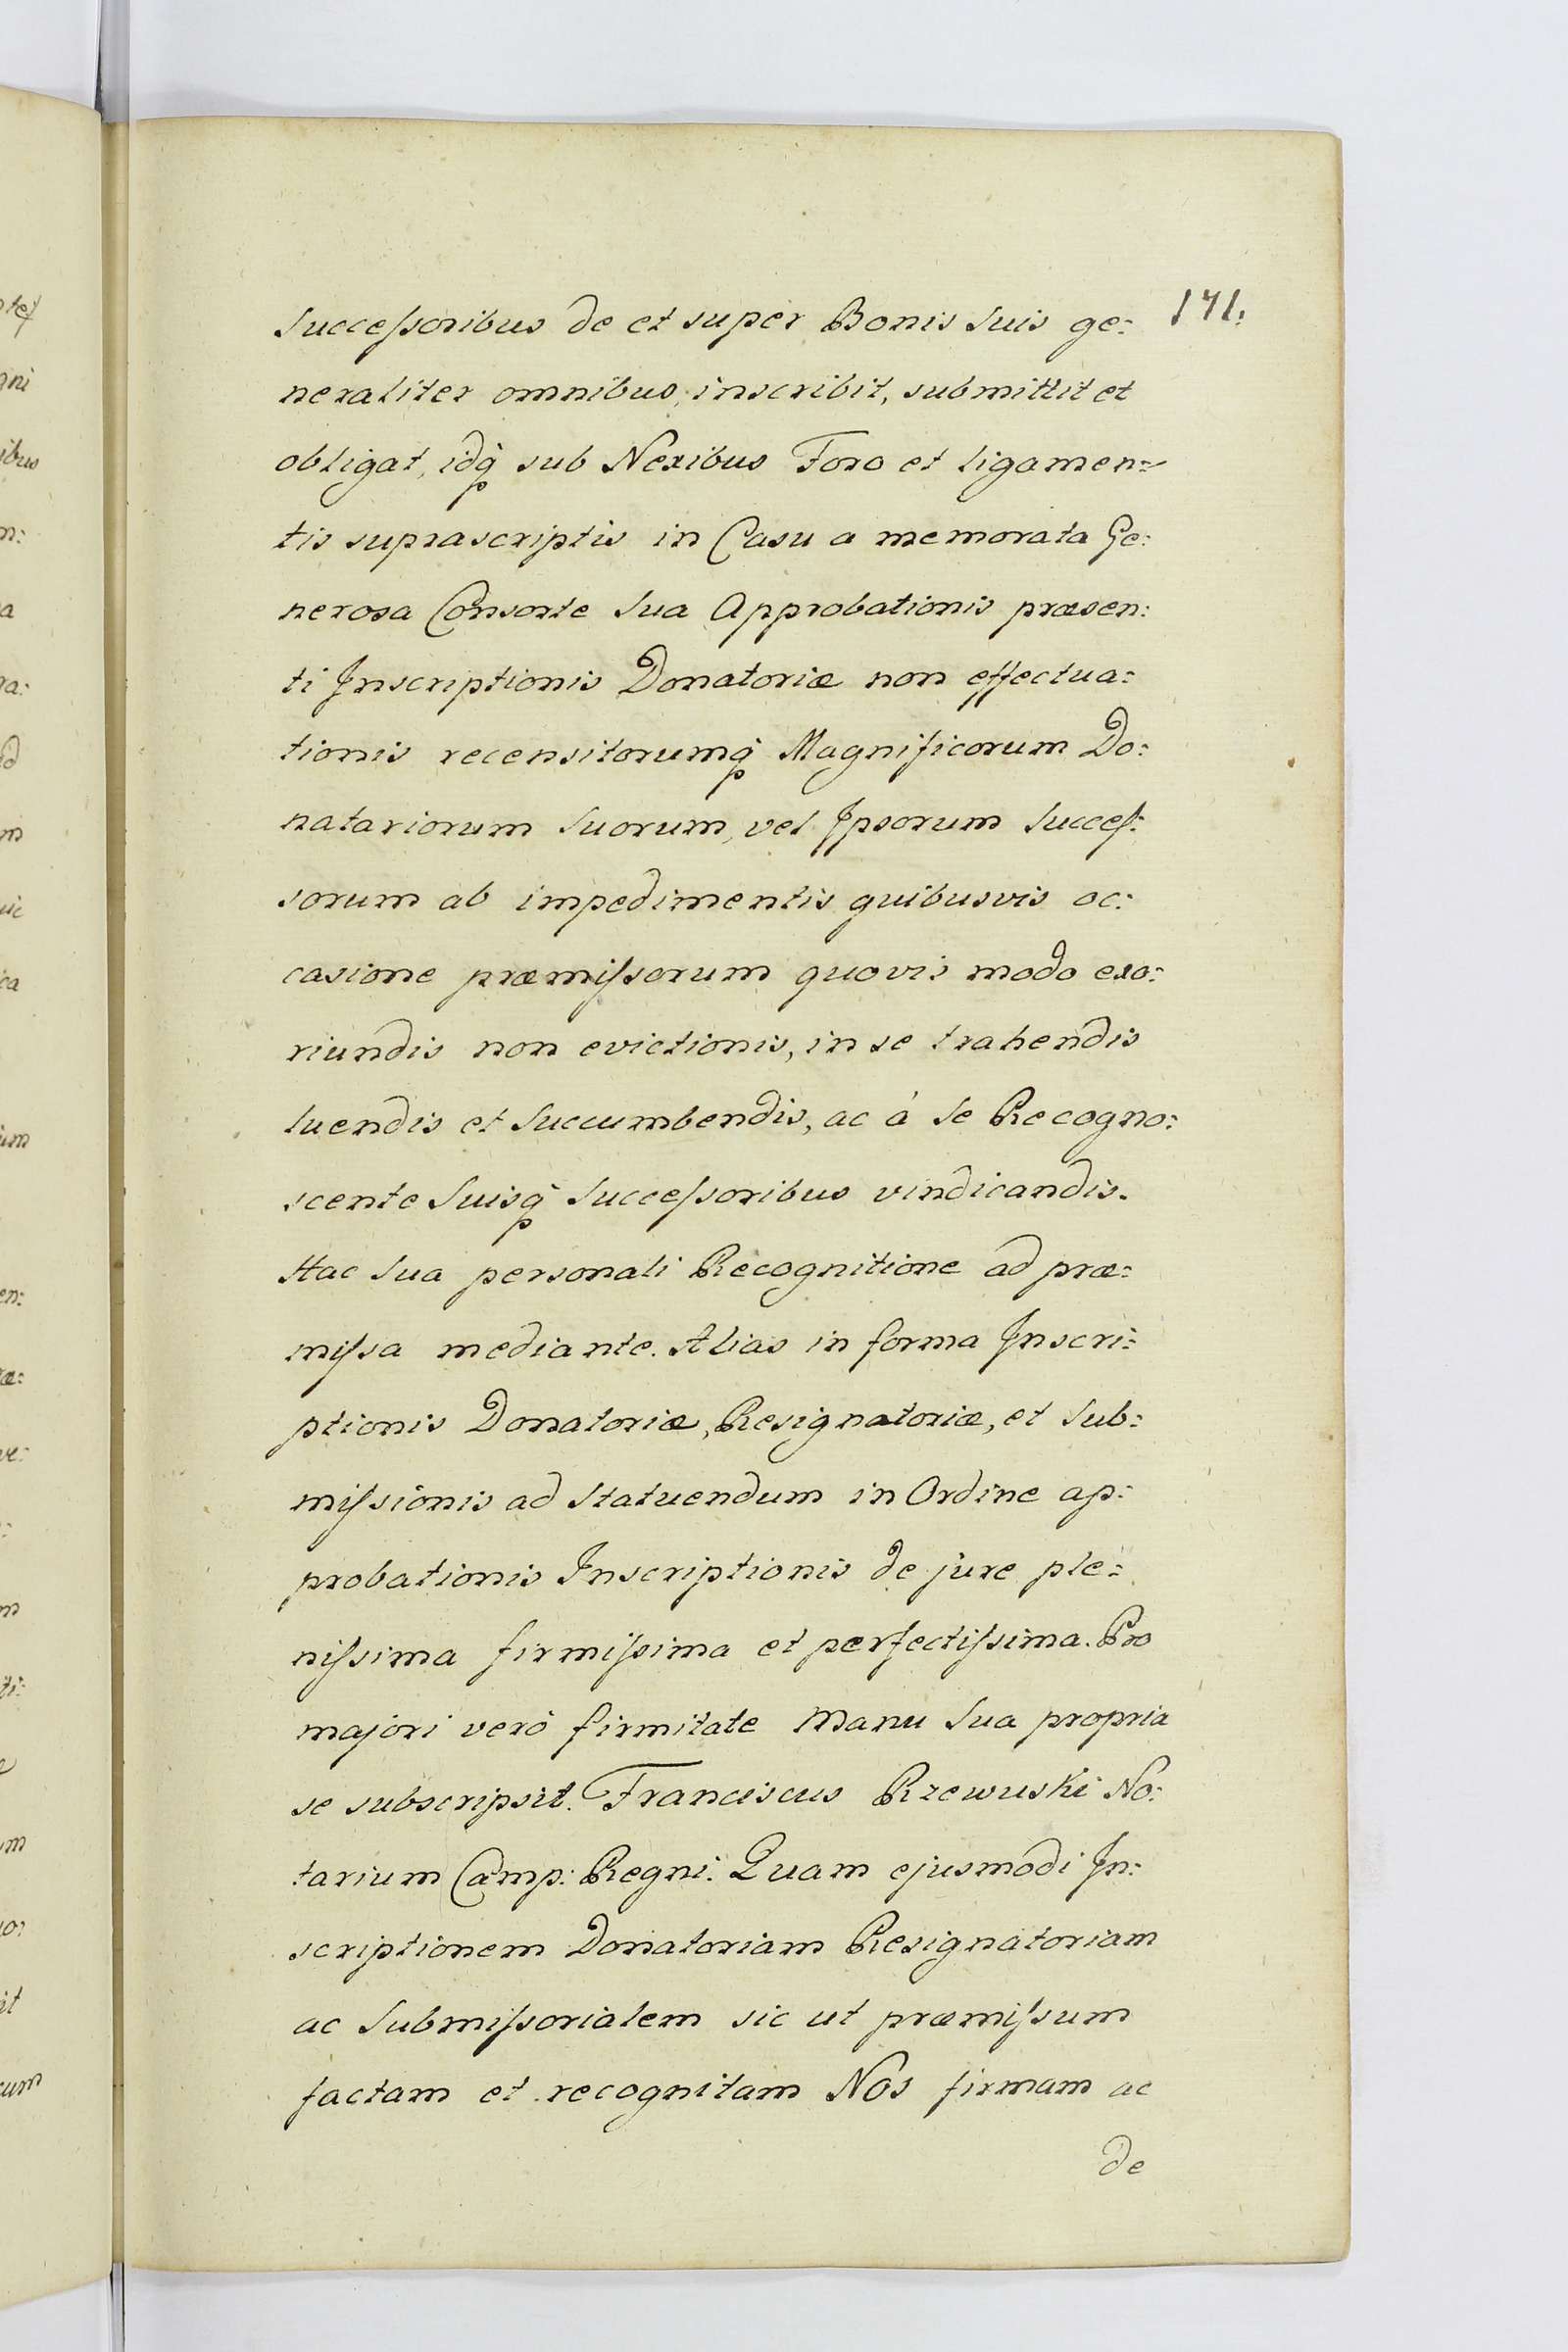 141.
Succeſsoribus de et super Bonis Suis ge:
neraliter omnibus, inscribit, submittit et
obligat, idq̀ sub Nexibus Foro et ligamen:
tis suprascriptis in Casu a memorata Ge:
nerosa Consorte Sua Approbationis præsen:
ti Inscriptionis Donatoriæ non effectua:
tionis recensitorumq̀ Magnificorum Do:
natariorum Suorum, vel Ipsorum Succeſ:
sorum ab impedimentis quibusvis oc:
casione præmiſsorum quovis modo exo:
riundis non evictionis, in se trahendis
luendis et Succumbendis, ac à Se Recogno:
scente Suisq̀ Succeſsoribus vindicandis.
Hac Sua personali Recognitione ad præ:
miſsa mediante. Alias in forma Inscri:
ptionis Donatoriæ, Resignatoriæ, et Sub:
miſsionis ad Statuendum in Ordine ap:
probationis Inscriptionis de jure ple:
niſsima firmiſsima et perfectiſsima. Pro
majori verò firmitate Manu Sua propria
se subscripsit. Franciscus Rzewuski No:
tarium Camp: Regni. Quam ejusmodi In:
scriptionem Donatoriam Resignatoriam
ac Submiſsorialem sic ut præmiſsum
factam et recognitam Nos firmam ac
de